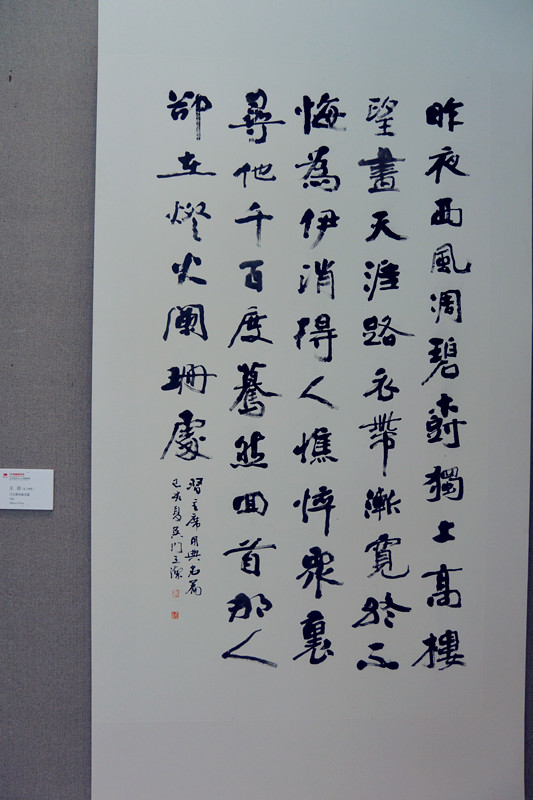 昨夜西風凋碧樹獨上高樓
望盡天涯路衣帶漸寬終不
悔為伊消得人憔悴眾裏
尋他千百度驀然回首那人
卻在燈火闌珊處
習主席用典名篇
己亥夏吳門王潔